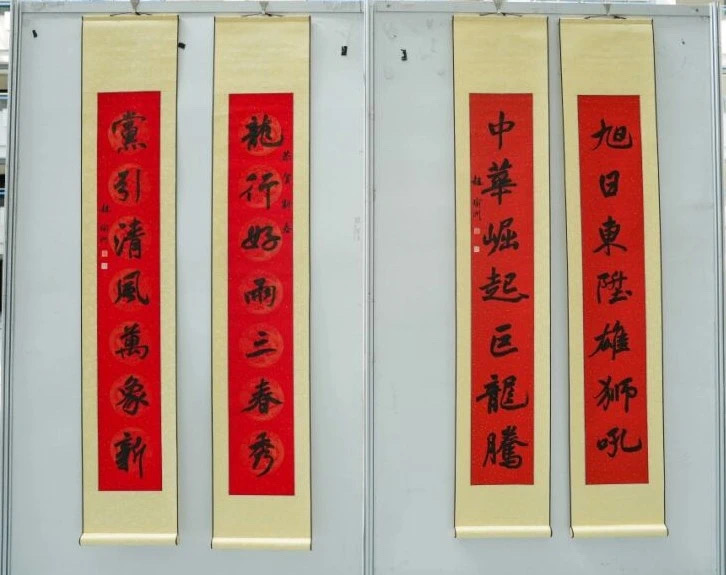 旭日東陞雄獅吼
中華崛起巨龍騰
恭賀新春
龍行好雨三春秀
黨引清風萬象新